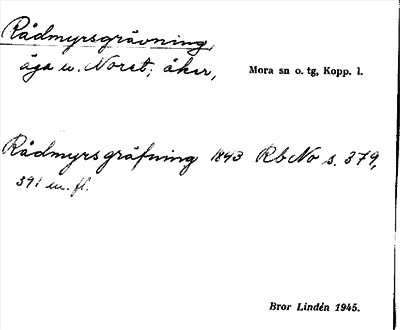 Rådmyrsgrävning,
äga u. Noret; åker, Mora sn o. tg, Kopp. l.
Rådmyrs gräfning 1843 RbNo s. 379,
391 m. fl.
Bror Lindén 1945.